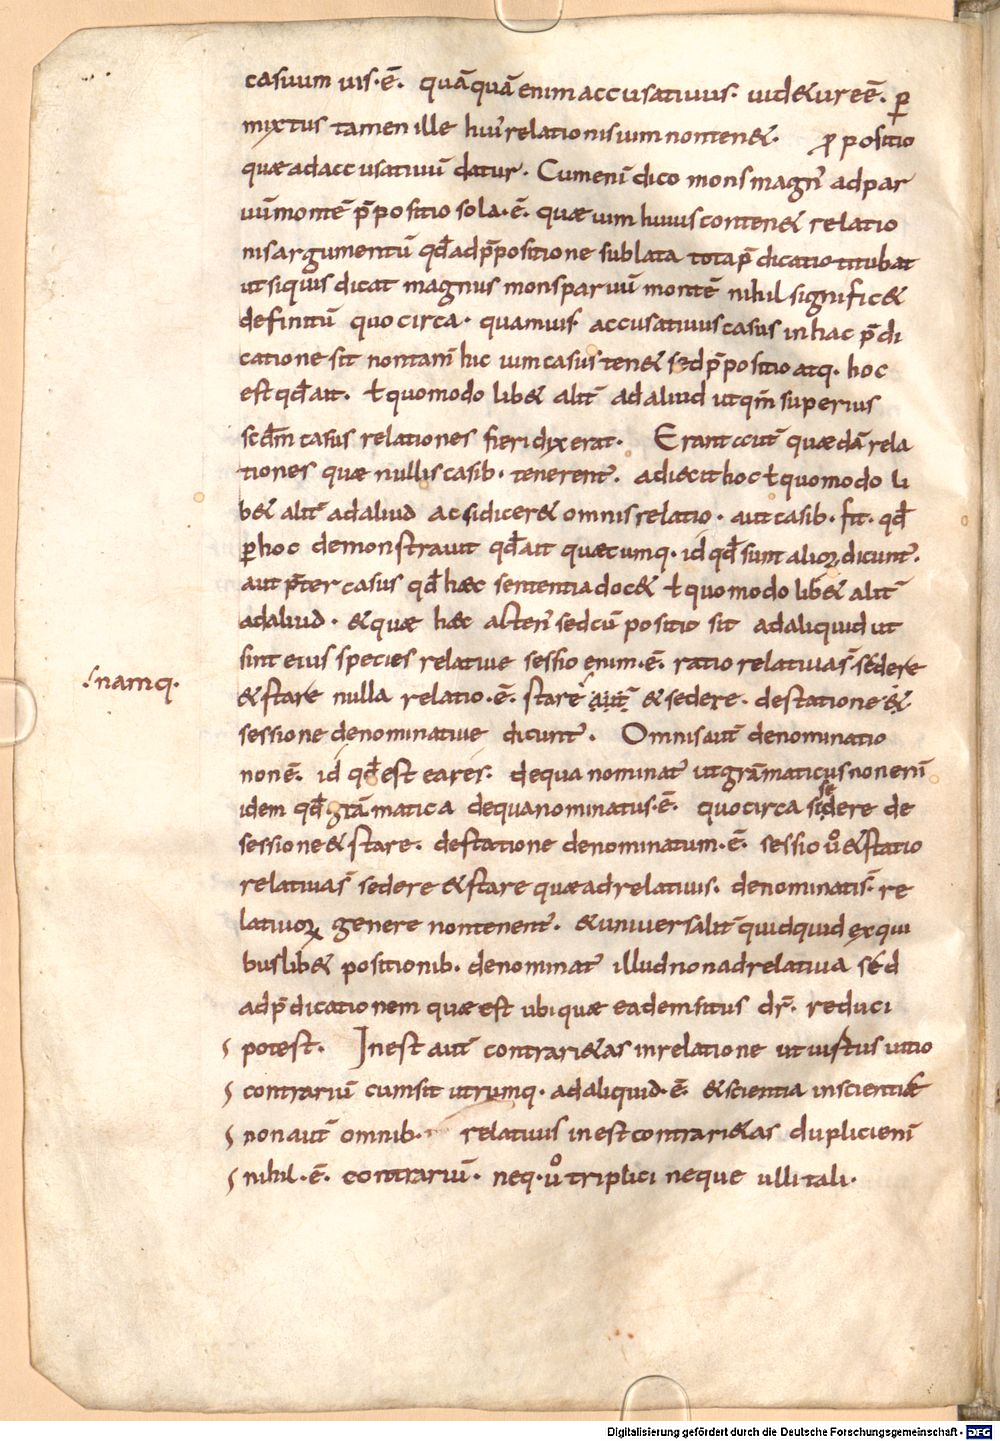 casuum uis·ē. quāquā enim accusatiuus· uid&ur eē. ꝑ
mixtus tamen ille hui' relationis uim non ten&· ꝓpositio
quæ ad accusatiuū datur· Cum eni̅ dico mons magn' ad par
uū montē p̄positio sola·ē· quæ uim huius conten& relatio
nis argumentū qđ adp̄positione sublata tota p̄dicatio titubat
ut siquis dicat magnus mons paruū montē nihil signific&
definitū quo circa· quamuis accusatiuus casus in hac p̄di
catione sit non tam̄ hic uim casus ten& sed p̄positio atq· hoc
est qđ ait· ł quomodo lib& alit̄ ad aliud ut qm̄ superius
scđm casus relationes fieri dixerat· Erant aut̄ quædā rela
tiones quæ nullis casib· tenerent'· adiecit hoc ł quomodo li
b& alit̄ ad aliud ac si dicer& omnis relatio· aut casib· fit· qđ
ꝑ hoc demonstrauit qđ ait quæcumq· id qđ sunt alioꝝ dicunt'·
aut p̄ter casus qđ hæc sententia doc& ł quomodo lib& alit̄
ad aliud· & quæ hæc alten' sed cū positio sit ad aliquid ut
sint eius species relatiue sessio enim·ē· ratio relatiuas̄· sedere
& stare nulla relatio·ē· stare aut̄ & sedere· de statione &
·/namq·
sessione denominatiue dicunt'· Omnis aut̄ denominatio
non ē· id qđ est ea res· de qua nominat' ut grāmaticus non eni̅
idem qđ grāmatica de qua nominatus·ē· quo circa sidere de
se
sessione & stare· de statione denominatum·ē· sessio ůo & statio
relatiuas̄ sedere & stare quæ ad relatiuis· denominatis̄· re
latiuoꝝ genere non tenent'· & uniuersalit̄ quidquid ex qui
buslib& positionib· denominat' illud non ad relatiua sed
ad p̄dicationem quæ est ubi quæ eadem situs dr̄· reduci
potest· Inest aut̄ contrari&as in relatione ut uirtus uitio
contrariū cum sit utrumq· ad aliquid·ē· & scientia inscientiæ
non aut̄ omnib· relatiuis inest contrari&as duplici eni̅
nihil·ē· contrariū· neq· ůo triplici neque ulli tali·
Digitalisierung gefördert durch die Deutsche Forschungsgemeinschaft - DFG